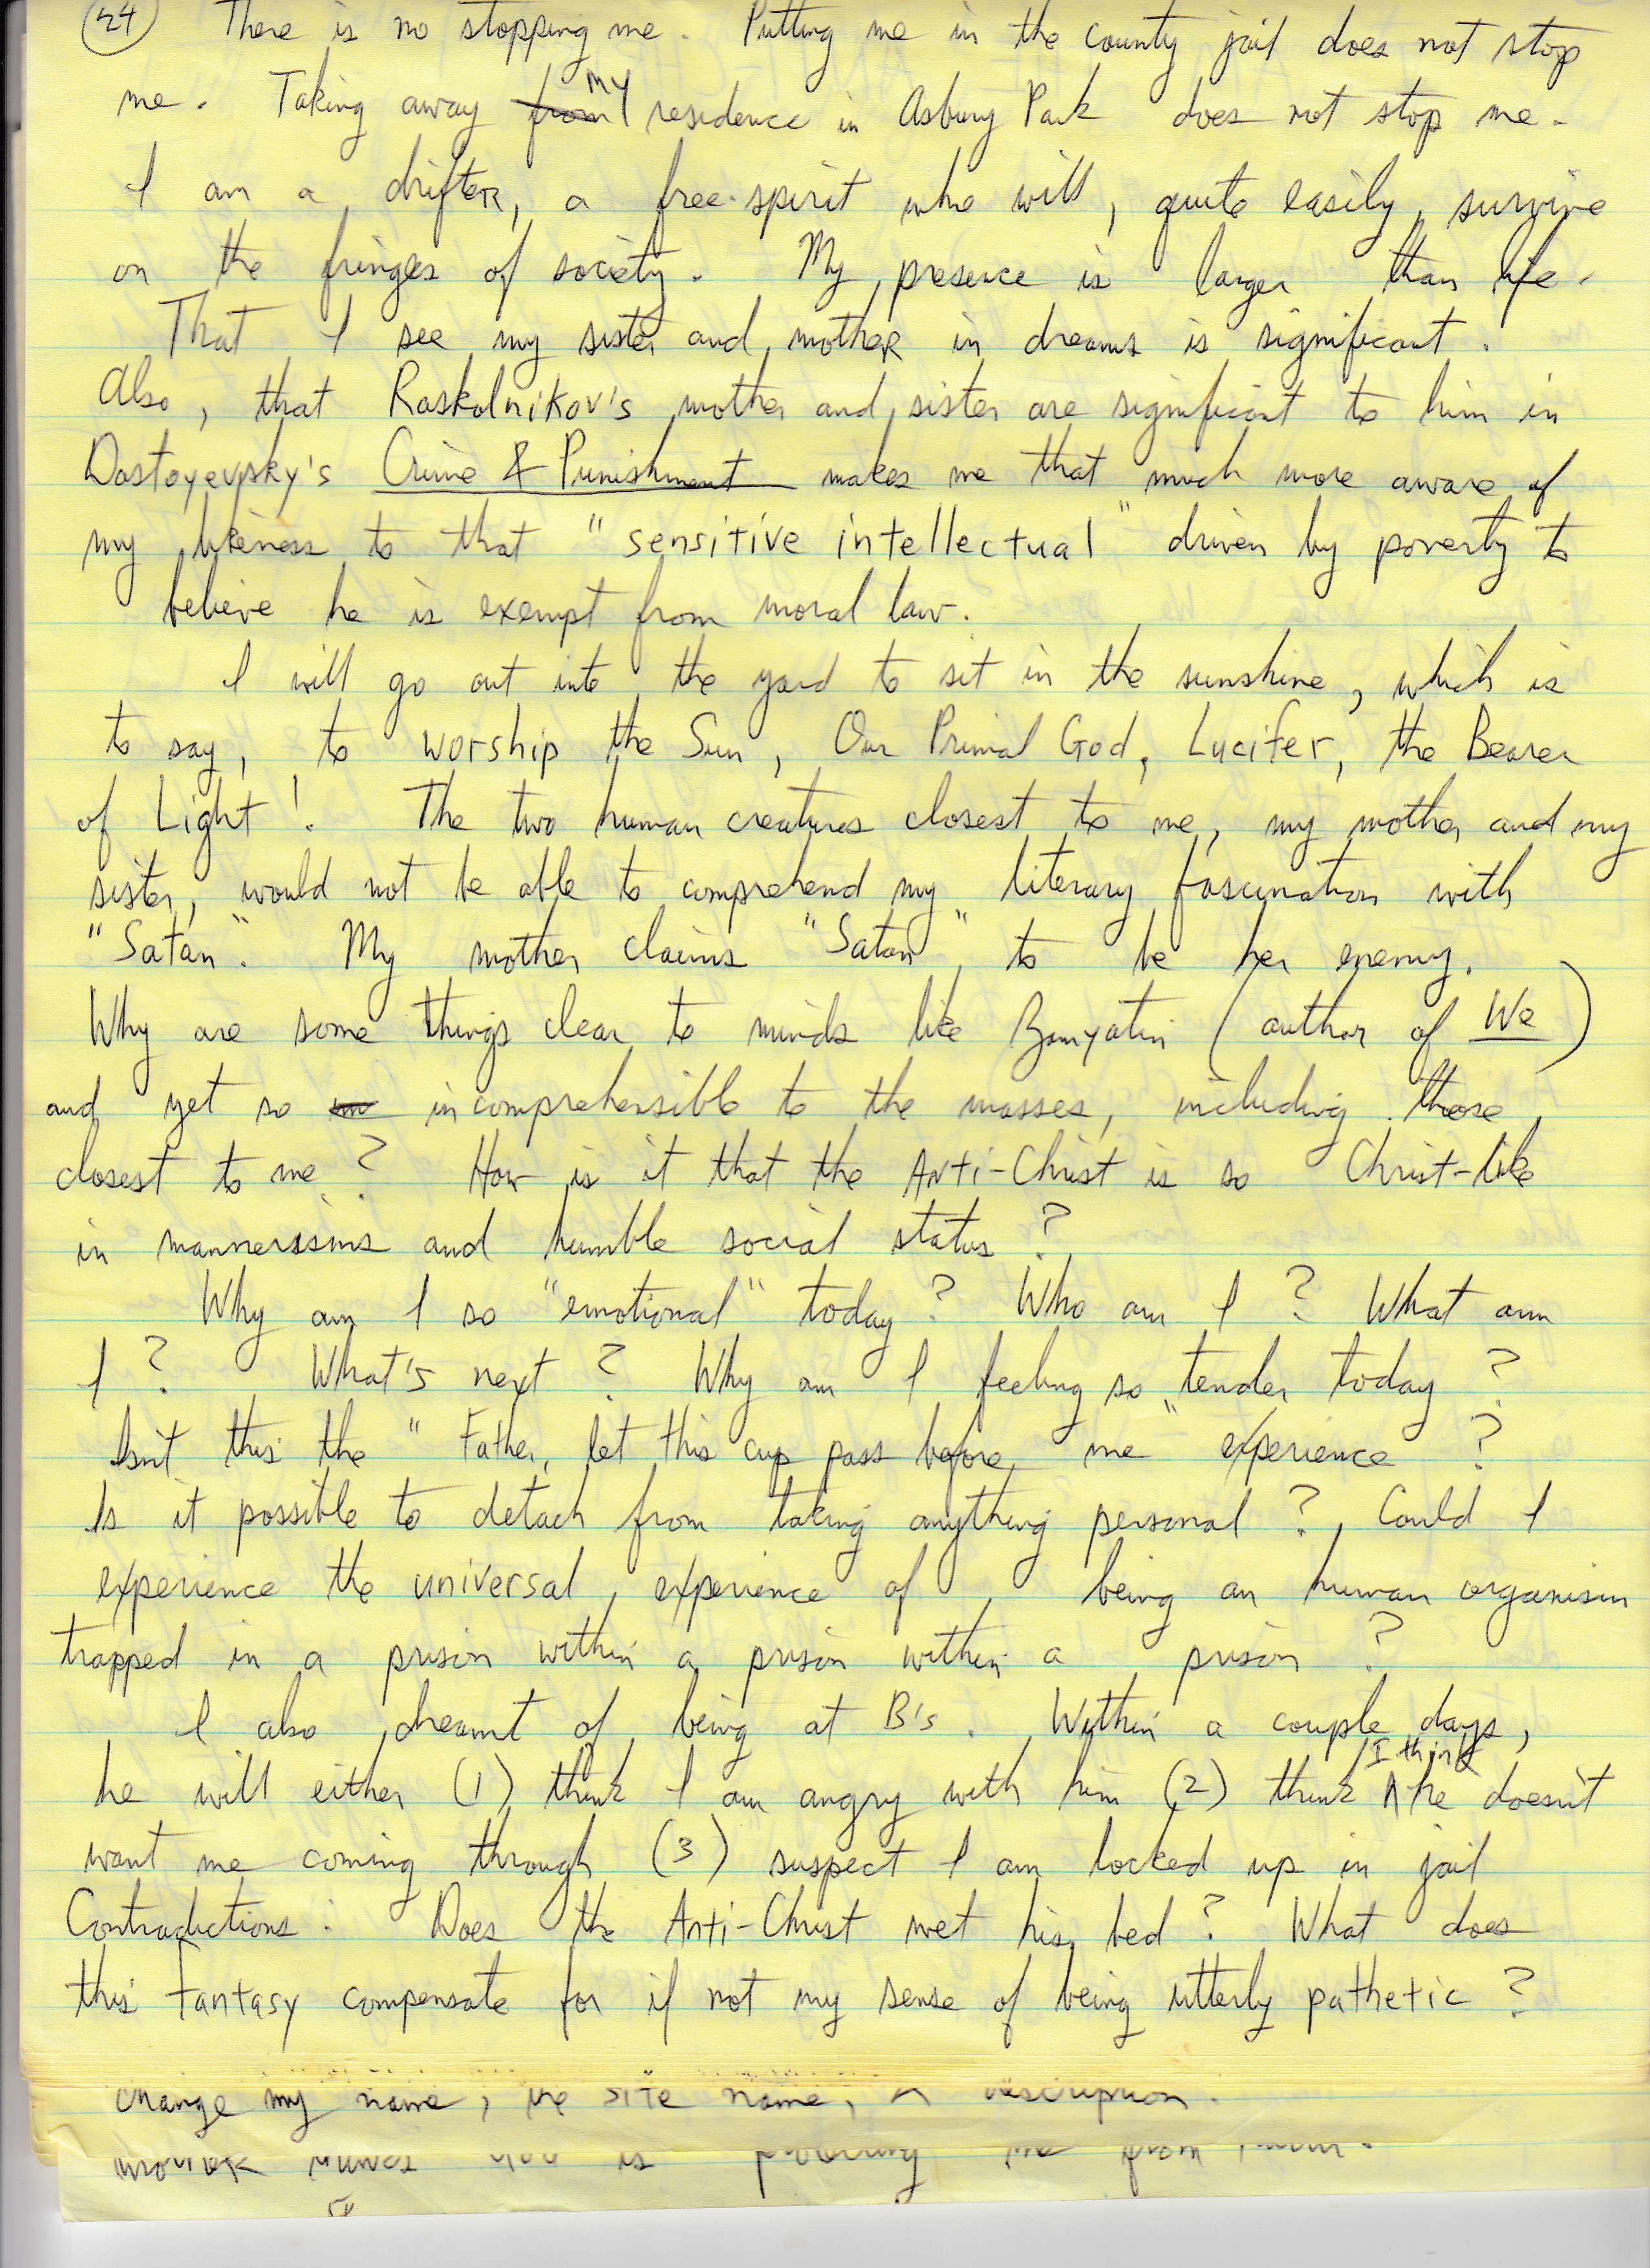 24 There is no stopping me. Putting me in the county jail does not stop
me. Taking away from my residence in Asbury Park does not stop me.
I am a drifter, a free-spirit who will, quite easily, survive
on the fringes of society. My presence is larger than life.
That I see my sister and mother in dreams is significant.
Also, that Raskolnikov's mother and sister are significant to him in
Dostoyevsky's Crime & Punishment makes me that much more aware of
my likeness to that "sensitive intellectual" driven by poverty to
believe he is exempt from moral law.
I will go out into the yard to sit in the sunshine, which is
to say, to worship the Sun, Our Primal God, Lucifer, the Bearer
of Light! The two human creatures closest to me, my mother and my
sister, would not be able to comprehend my literary fascination with
"Satan". My mother claims "Satan" to be her enemy.
Why are some things clear to minds like Zamyatin (author of We)
and yet so incomprehensible to the masses, including those
closest to me? How is it that the Anti-Christ is so Christ-like
in mannerssims and humble social status?
Why am I so "emotional" today? Who am I? What am
I? What's next? Why am I feeling so tender today?
Isn't this the "Father, let this cup pass before me" experience?
Is it possible to detach from taking anything personal? Could I
experience the universal experience of, being an human organism
trapped in a prison within a prison within a prison?
I also dreamt of being at B's. Within a couple days,
he will either (1) think I am angry with him (2) think I think he doesn't
want me coming through (3) suspect I am locked up in jail
Contradictions: Does the Anti-Christ wet his bed? What does
this fantasy compensate for if not my sense of being utterly pathetic?
change my name, the site name, description.